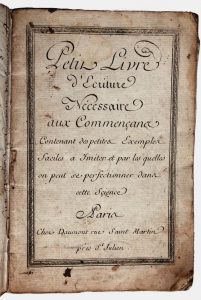 Petit Livre
d'Ecriture
Necessaire
aux Commençans
Contenant des petits Exemples
faciles a Imiter et par les quelles
on peut se perfectionner dans
cette Science
A Paris
Chez Daumont rue Saint Martin
près St. Julien